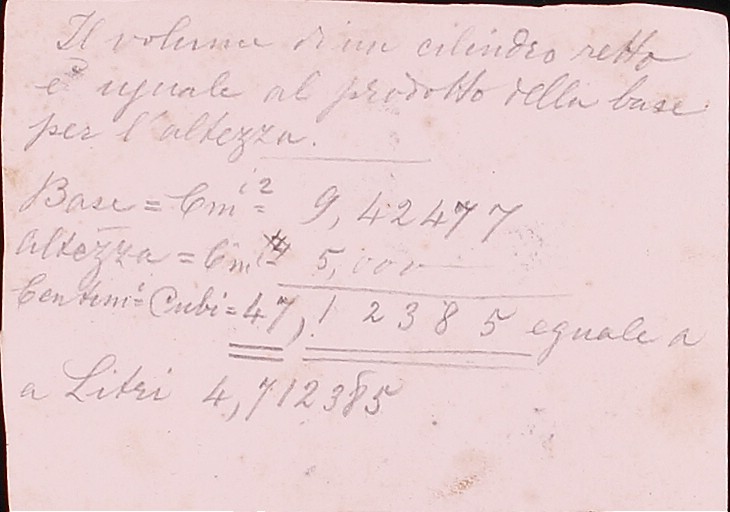 Il volume di un cilindro retto
è uguale al prodotto della base
per l'altezza.
Base = Cmⁱ² = 9,42477
Altezza = Cmⁱ = 5,000
Centimⁱ = Cubi = 47,12385 eguale a
a Litri 4,712385